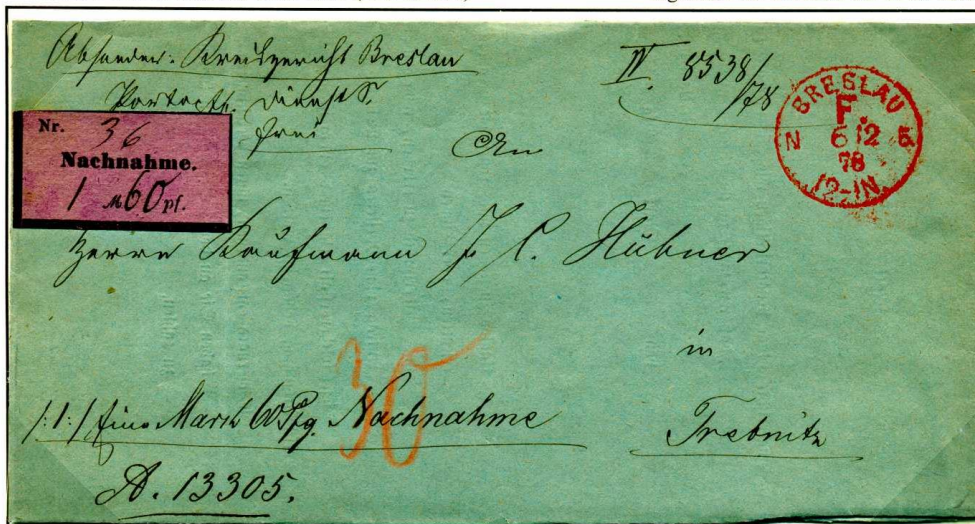 Absender: Kreisgericht Breslau
Portopfl. Dienst S.
frei
IV. 8538/78
BRESLAU
F.
N 6 12 5
78
12-1N.
Nr. 36
Nachnahme.
1 M 60 pf.
An
Herrn Kaufmann J. C. Hübner
in
Trebnitz
30
/:1:/ Eine Mark 60 Pfg. Nachnahme
A. 13305.